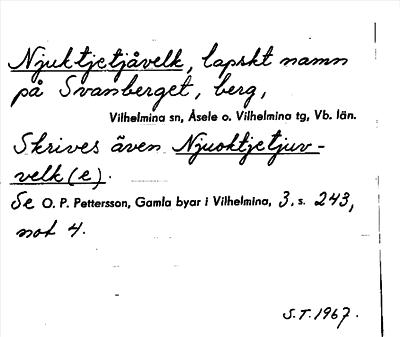 Njuktjetjåvelk, lapskt namn
på Svanberget, berg,
Vilhelmina sn, Åsele o. Vilhelmina tg, Vb. län.
Skrives även Njuoktjetjuv-
velk(e).
Se O. P. Pettersson, Gamla byar i Vilhelmina, 3, s. 243,
not 4.
S.T. 1967.